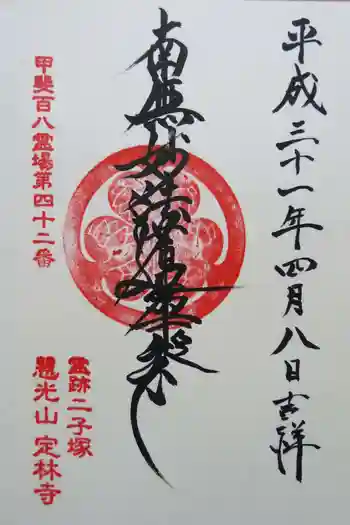 平成三十一年四月八日吉祥
南無妙法蓮華経
甲斐百八霊場第四十二番
霊跡二子塚
慧光山 定林寺